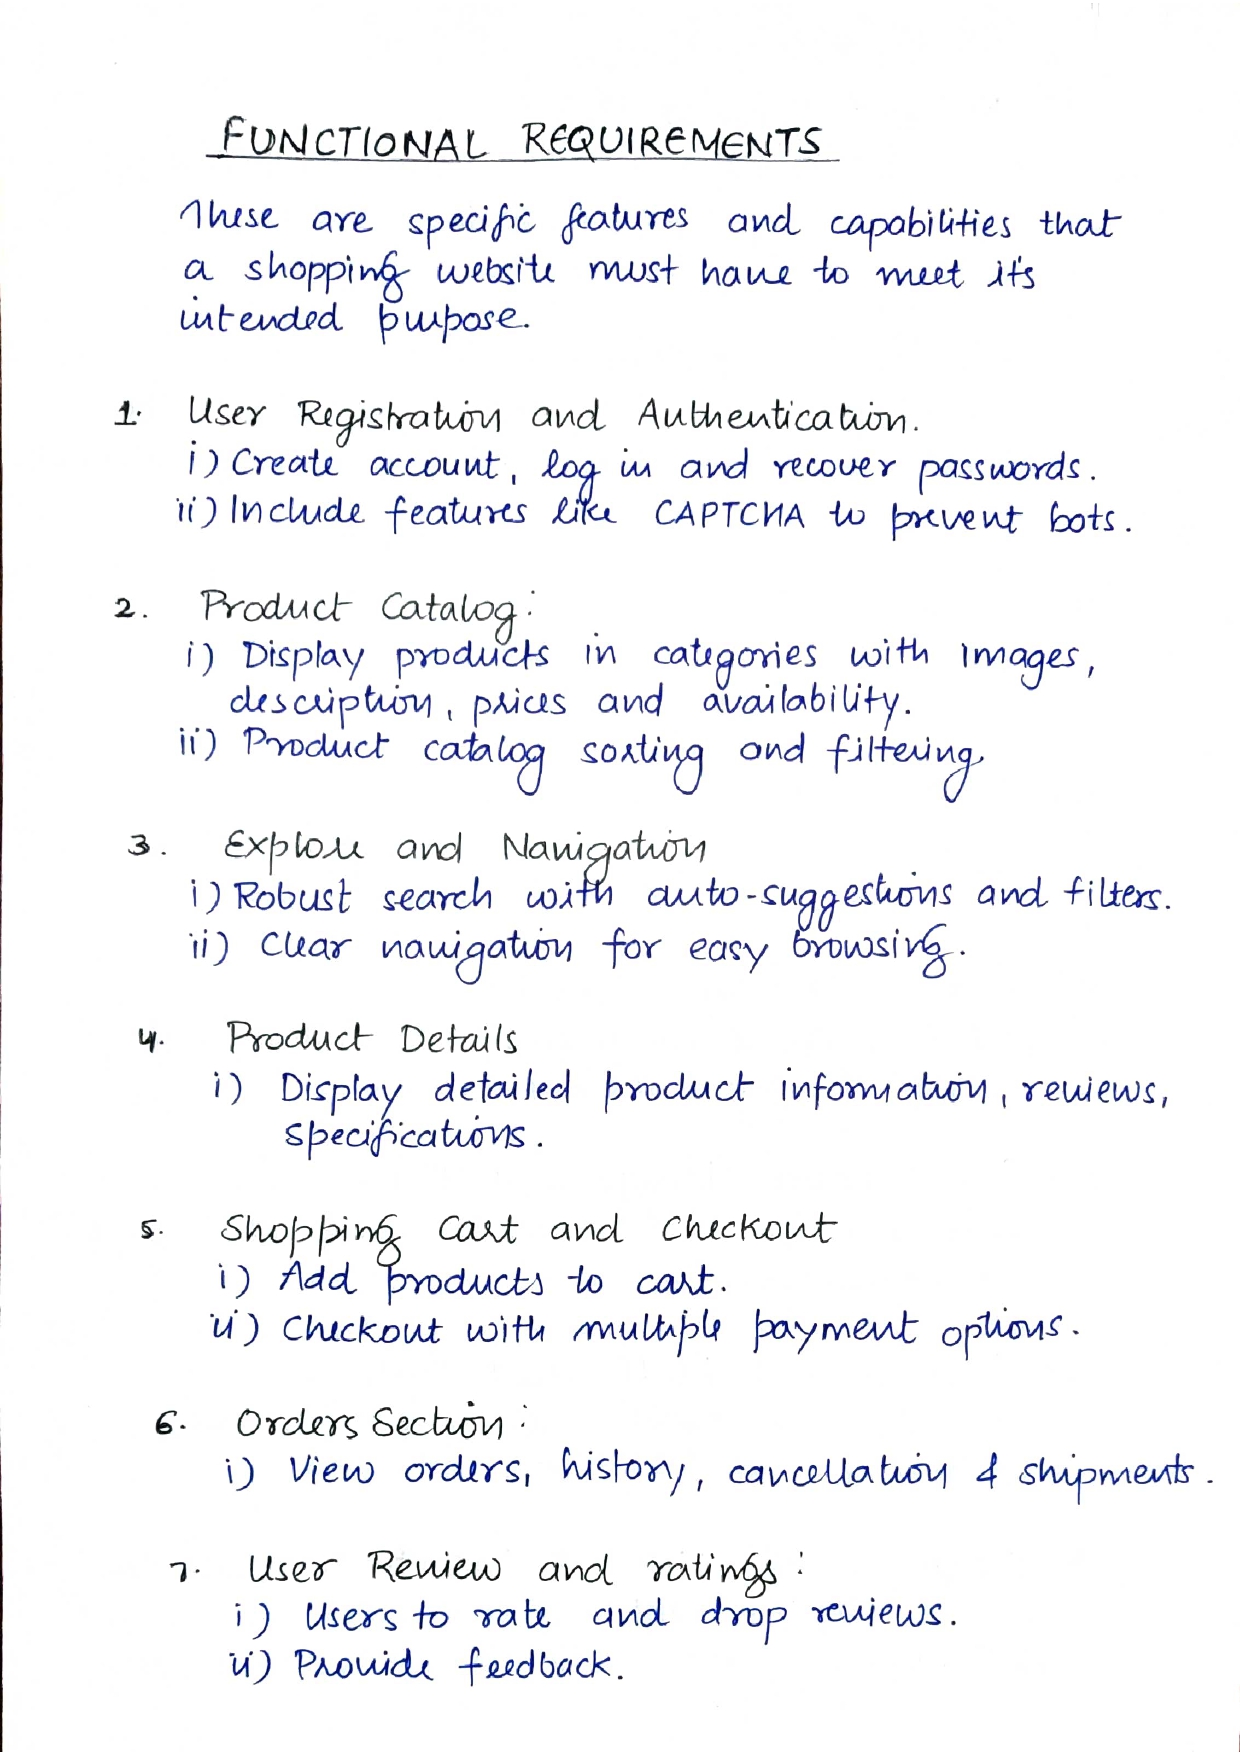 FUNCTIONAL REQUIREMENTS
These are specific features and capabilities that
a shopping website must have to meet it's
intended purpose.
1. User Registration and Authentication.
i) Create account, log in and recover passwords.
ii) Include features like CAPTCHA to prevent bots.
2. Product Catalog:
i) Display products in categories with images,
description, prices and availability.
ii) Product catalog sorting and filtering
3. Explore and Navigation
i) Robust search with auto-suggestions and filters.
ii) Clear navigation for easy browsing.
4. Product Details
i) Display detailed product information, reviews,
specifications.
5. Shopping Cart and Checkout
i) Add products to cart.
ii) Checkout with multiple payment options.
6. Orders Section:
i) View orders, history, cancellation & shipments.
7. User Review and ratings:
i) Users to rate and drop reviews.
ii) Provide feedback.